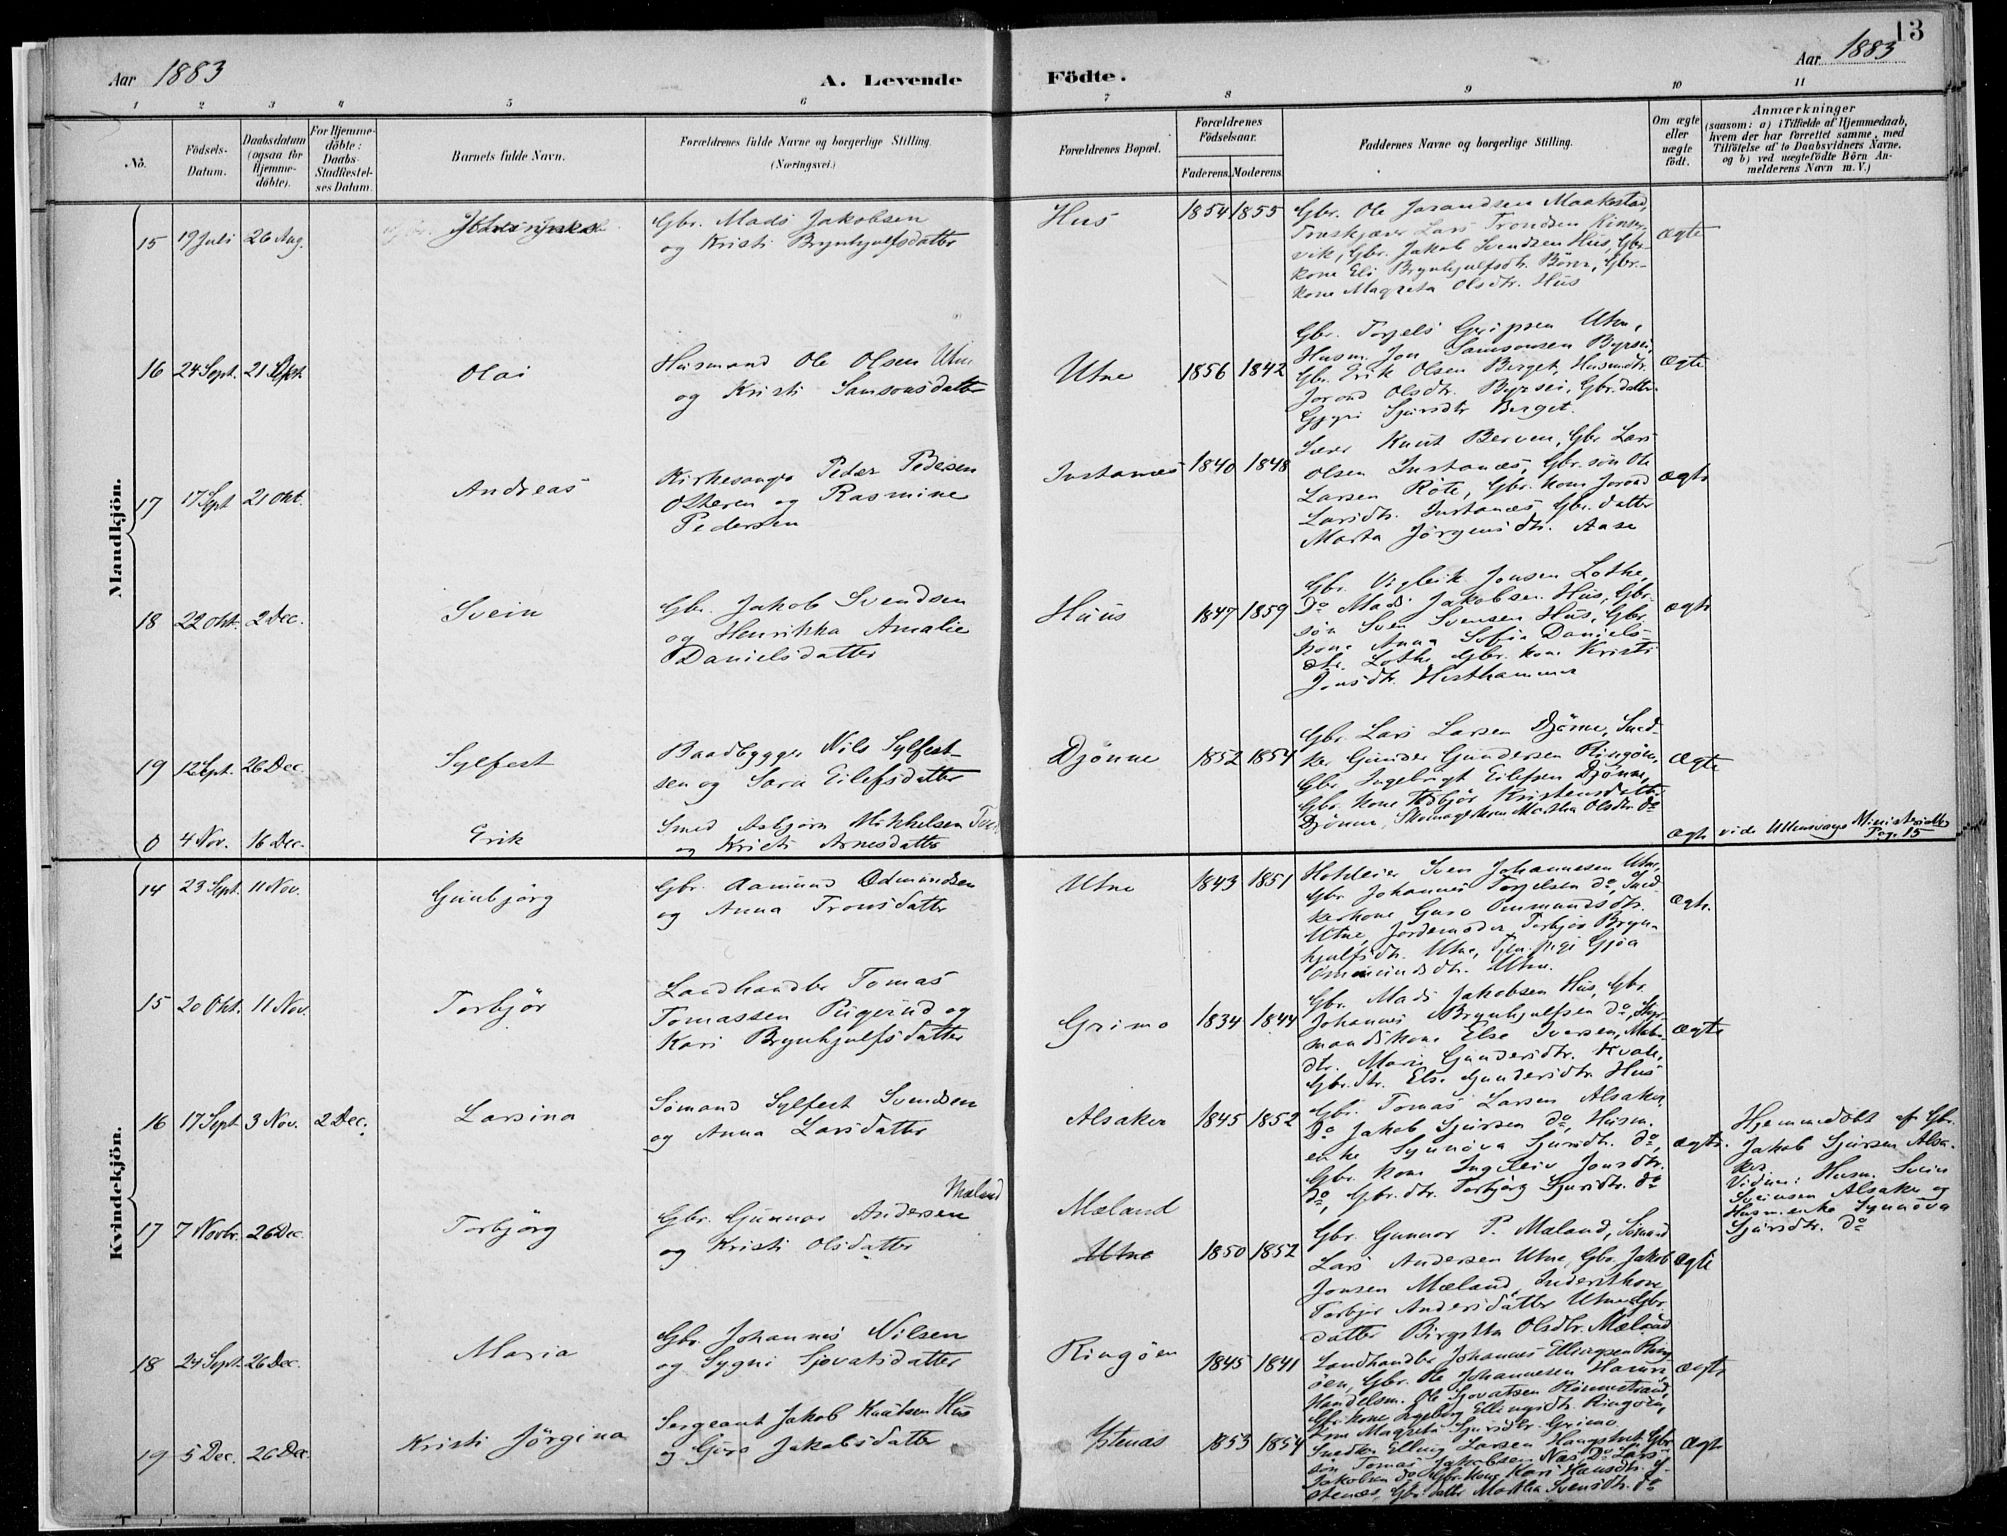 13
Aar 1883
A. Levende
Födte.
Aar 1883
1 2 3 4 5 6 7 8 9 10 11
No.
Födsels-
Datum.
Daabsdatum
(ogsaa for
Hjemme-
döbte).
For Hjemme-
döbte:
Daabs-
Stadfæstel-
ses Datum.
Barnets fulde Navn.
Forældrenes fulde Navne og borgerlige Stilling.
(Næringsvei.)
Forældrenes Bopæl.
Forældrenes
Födselsaar.
Faderens. Moderens.
Faddernes Navne og borgerlige Stilling.
Om ægte
eller
uægte
födt.
Anmærkninger
(saasom: a) i Tilfælde af Hjemmedaab,
hvem der har forrettet samme, med
Tilföielse af to Daabsvidners Navne,
og b) ved uægtefödte Börn An-
melderens Navn m.V.)
Mandkjön.
15 19 Juli 26 Aug.
Gbr. Mads Jakobsen
og Kristi Brynhjulfsdatter
Hus 1854 1855
Gbr. Ole Jorandsen Maakestad,
Lars Trondsen Kinser-
vik, Gbr. Jakob Svendsen Hus, Gbr-
kone Eli Brynhjulfsdtr. Börve, Gbr-
kone Magreta Olsdtr. Hus
ægte
16 24 Sept. 21
Olai
Husmand Ole Olsen Utne
og Kristi Samsonsdatter
Utne 1856 1842
Gbr. Torjels Gripsen Utne,
Husm. Jon Samsonsen Byrsei,
Gbr. Erik Olsen Berget, Husmdtr.
Jorond Olsdtr. Byrsei, Gbr. datter
Gyri Sjursdtr Berget.
ægte
17 17 Sept 21 Okt.
Andreas
Kirkesanger Peder Pedersen
Osteren og Rasmine
Pedersen
Instanæs 1840 1848
Lærer Knut Berven, Gbr Lars
Olsen Instanæs, Gbr. sön Ole
Larsen Röte, Gbr. kone Jorond
Larsdtr. Instanæs, Gbr. datter
Marta Jörgensdtr. Aase
ægte
18 22 Okt. 2 Dec.
Svein
Gbr. Jakob Svendsen
og Henrikka Amalie
Danielsdatter
Huus 1847 1859
Gbr. Vigleik Jonsen Lothe,
Do Mads Jakobsen Hus, Gbr-
sön Sven Svensen Hus, Gbr.
kone Anna Sofia Daniels-
dtr. Lothe, Gbr. kone Kristi
Jonsdtr. Hesthammer
ægte
19 12 Sept. 26 Dec.
Sylfest
Baadbygger Nils Sylfest-
sen og Sara Eilefsdatter
Djönne 1852 1854
Gbr. Lars Larsen Djönne, Sned-
ker Gunder Gundersen Ringöen,
Gbr. Ingebrigt Eilefsen Djönne,
Gbr. kone Torbjör Kristensdatter
Djönne, Skomagerkone Martha Olsdtr. do
ægte
0 4 Nov. 16 Dec.
Erik
Smed Asbjörn Mikkelsen
og Kristi Arnesdatter
ægte vide Ullensvangs Ministerialb.
Pag. 15
Kvindekjön.
14 23 Sept. 11 Nov.
Gunbjörg
Gbr. Aamund Odmundsen
og Anna Tronsdatter
Utne 1843 1851
Hoteleier Sven Johannesen Utne,
Gbr Johannes Torjelsen do, Sned-
kerkone Guro Ommundsdtr.
Utne, Jordemoder Torbjör Bryn-
hjulfsdtr. Utne, Tjen. pige Gjöa
Ommundsdtr. Utne.
ægte
15 20 Okt. 11 Nov.
Torbjör
Landhandler Tomas
Tomassen Pügerud og
Kari Brynhjulfsdatter
Grimo 1834 1844
Gbr. Mads Jakobsen Hus, Gbr.
Johannes Brynhjulfsen do,
mandskone Else Iversen,
dtr. Mari Gundersdtr. Kvale,
Gbr. dtr. Else Gundersdtr. Hus
ægte
16 17 Sept 3 Nov. 2 Dec.
Larsina
Sömand Sylfest Svendsen
og Anna Larsdatter
Alsaker 1845 1852
Gbr. Tomas Larsen Alsaker,
Do Jakob Sjursen do, Husm.
enke Synnöva Sjursdtr. do,
Gbr. kone Ingeleiv Jonsdtr.
do, Gbr. dtr. Torbjörg Sjursdtr. do
ægte
Hjemmedöbt af Gbr.
Jakob Sjursen Alsa-
ker
Vidner: Husm. Svein
Sveinsen Alsaker og
Husm.enke Synnöva
Sjursdtr. do
17 7 Novbr. 26 Dec.
Torbjörg
Mæland
Gbr. Gunnar Andersen
og Kristi Olsdatter
Mæland
Utne 1850 1852
Gbr. Gunnar P. Mæland, Sömand
Lars Andersen Utne, Gbr. Jakob
Jonsen Mæland, Inderstkone
Torbjör Andersdatter Utne, Gbr.
datter Birgitta Olsdtr. Mæland
ægte
18 24 Sept. 26 Dec.
Maria
Gbr. Johannes Nilsen
og Sygni Sjovatsdatter
Ringöen 1845 1841
Landhandler Johannes Ellingsen Ring-
öen, Gbr. Ole Johannesen
Handelsm. Ole Sjovatsen
Gbr. kone Ingeborg Ellingsdtr. Ringöen,
Magreta Sjursdtr. Grimo
ægte
19 5 Dec. 26 Dec.
Kristi Jörgina
Sergeant Jakob Knutsen Hus
og Guro Jakobsdatter
Ystenæs 1853 1854
Snedker Elling Larsen Gbr
sön Tomas Jakobsen Næs, Do Lars
Jakobsen do, Gbr. kone Kari Hansdtr. Y-
stenæs, Gbr. datter Martha Svensdtr. do
ægte